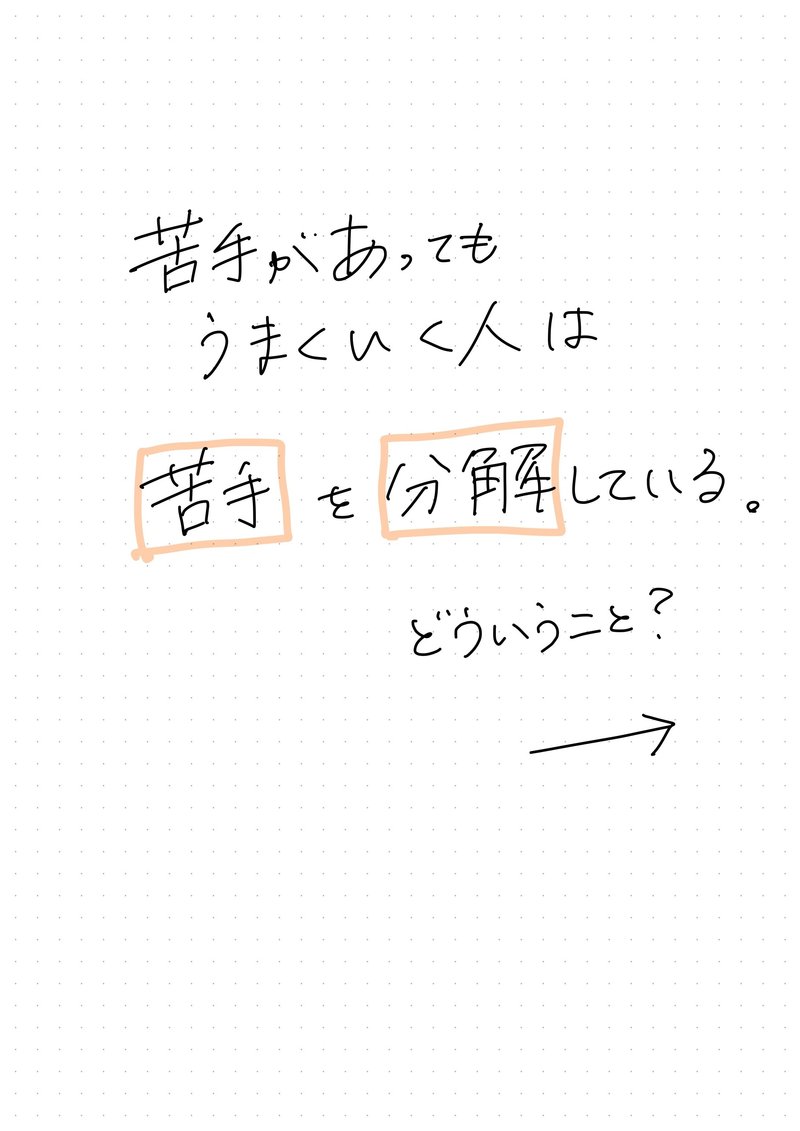 苦手があっても
うまくいく人は
苦手を分解している。
どういうこと?